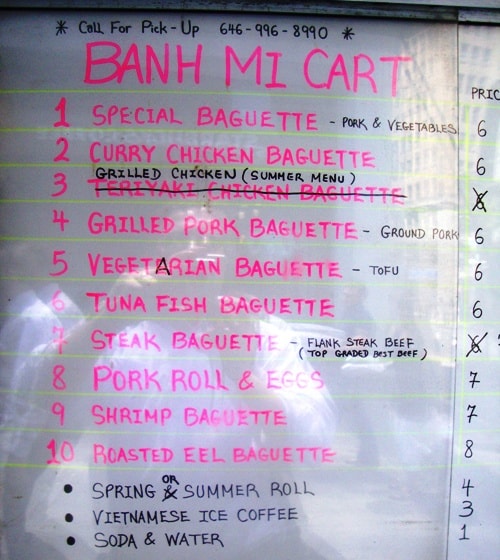 * Call For Pick-Up 646-996-8990 *
BANH MI CART
PRIC
1 SPECIAL BAGUETTE - PORK & VEGETABLES 6
2 CURRY CHICKEN BAGUETTE 6
GRILLED CHICKEN (SUMMER MENU)
3 TERIYAKI CHICKEN BAGUETTE
4 GRILLED PORK BAGUETTE - GROUND PORK 6
5 VEGETARIAN BAGUETTE - TOFU 6
6 TUNA FISH BAGUETTE 6
7 STEAK BAGUETTE - FLANK STEAK BEEF
(TOP GRADED BEST BEEF)
8 PORK ROLL & EGGS 7
9 SHRIMP BAGUETTE 7
10 ROASTED EEL BAGUETTE 8
• SPRING OR SUMMER ROLL 4
• VIETNAMESE ICE COFFEE 3
• SODA & WATER 1